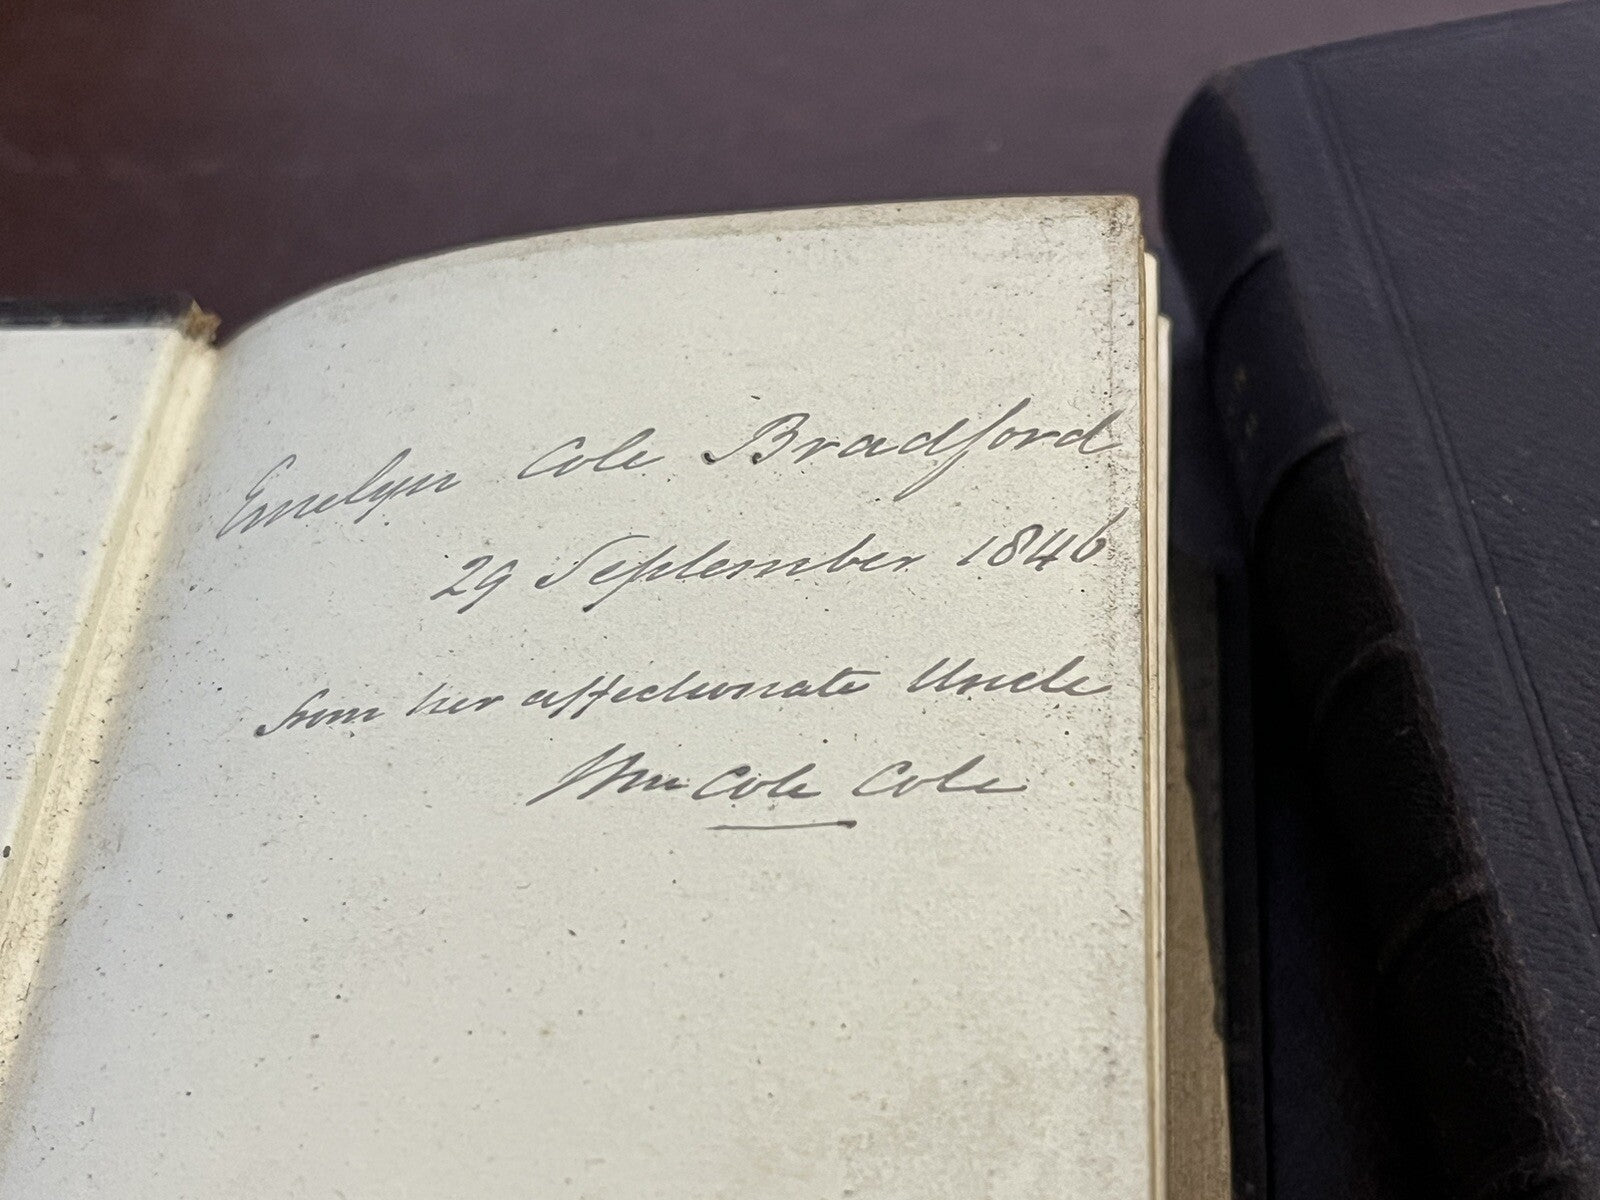 Emelyn Cole Bradford
29 September 1846
from her affectionate Uncle
Wm Cole Cole